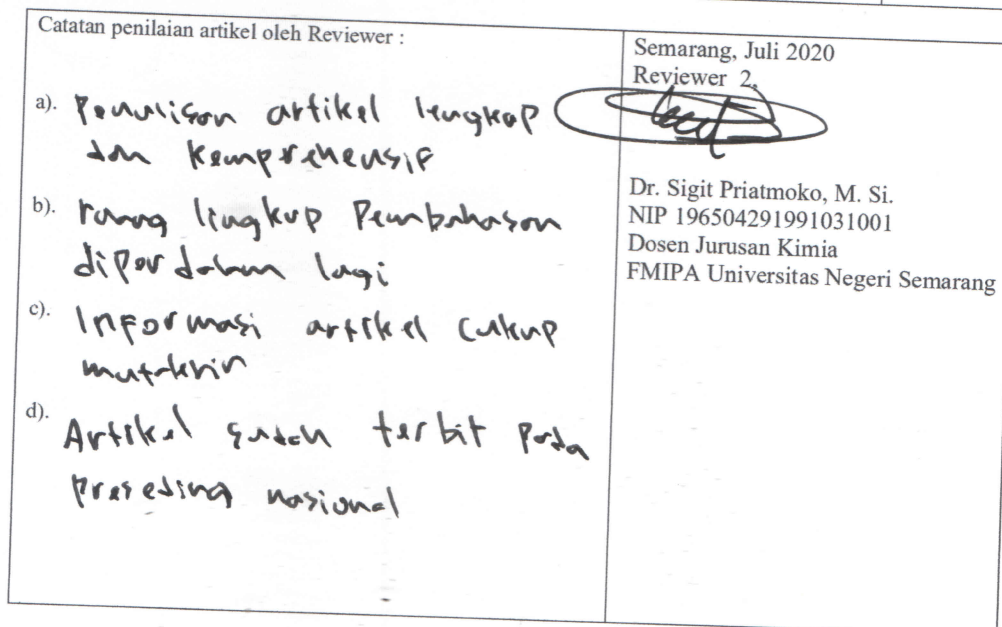 Catatan penilaian artikel oleh Reviewer :
a). Penulisan artikel lengkap
dan Komprehensif
b). ruang lingkup Pembahasan
diperdalam lagi
c). Informasi artikel cukup
mutakhir
d).
Artikel sudah terbit pada
proseding nasional
Semarang, Juli 2020
Reviewer 2,
Dr. Sigit Priatmoko, M. Si.
NIP 196504291991031001
Dosen Jurusan Kimia
FMIPA Universitas Negeri Semarang